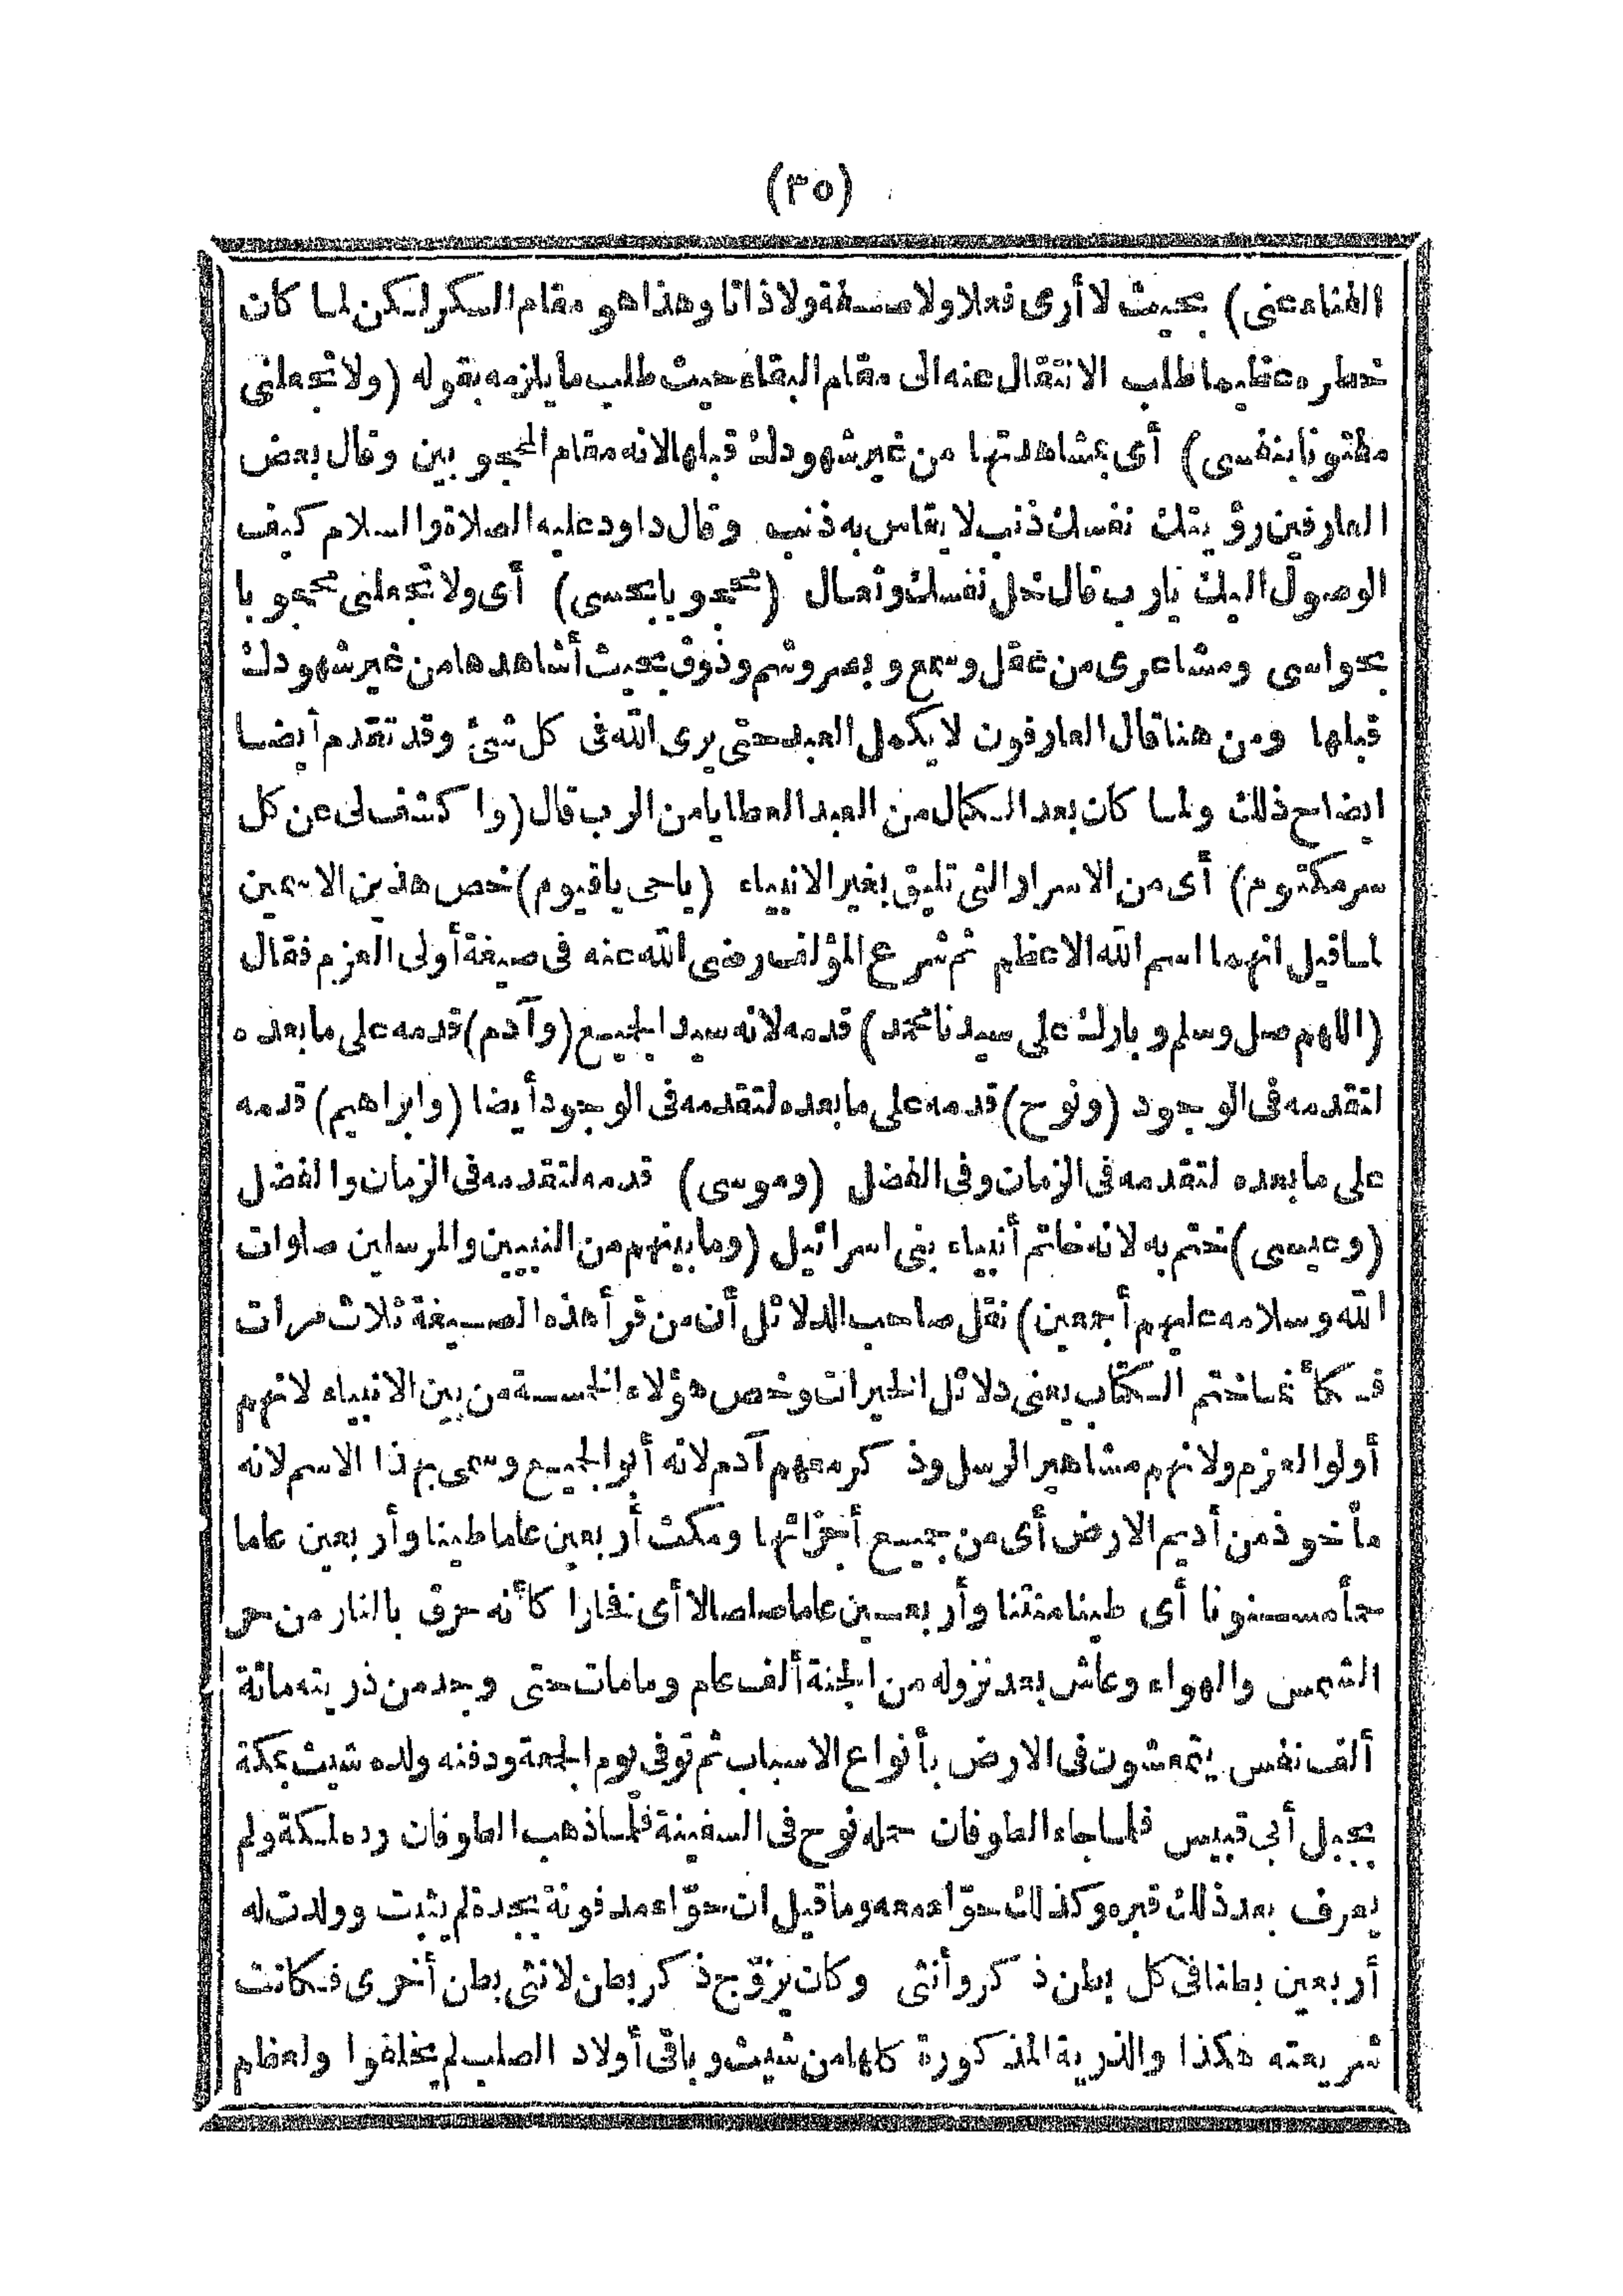 (٣٥)
الفناء عنى) بحيث لا أرى فعلا ولا صفة ولا ذاتا وهذا هو مقام السكر لكن لما كان
خطره عظيما طلب الانتقال عنه الى مقام البقاء حيث طلب ما يلزمه بقوله (ولا تجعلنى
مفتونا بنفسى) أى بمشاهدتها من غير شهودك قبلها لانه مقام المحجوبين وقال بعض
العارفين رؤيتك نفسك ذنب لا يقاس به ذنب وقال داود عليه الصلاة والسلام كيف
الوصول اليك يارب قال خل نفسك وتعال (محجوبا بحسى) أى ولا تجعلنى محجوبا
بحواسى ومشاعرى من عقل وسمع وبصر وشم وذوق بحيث أشاهدها من غير شهودك
قبلها ومن هنا قال العارفون لا يكمل العبد حتى يرى الله فى كل شئ وقد تقدم أيضا
ايضاح ذلك ولما كان بعد الكمال من العبد العطايا من الرب قال (واكشف لى عن كل
سر مكتوم) أى من الاسرار التى تليق بغير الانبياء (ياحى ياقيوم) خص هذين الاسمين
لما قيل انهما اسم الله الاعظم ثم شرع المؤلف رضى الله عنه فى صيغة أولى العزم فقال
(اللهم صل وسلم وبارك على سيدنا محمد) قدمه لانه سيد الجميع (وآدم) قدمه على ما بعده
لتقدمه فى الوجود (ونوح) قدمه على ما بعده لتقدمه فى الوجود أيضا (وابراهيم) قدمه
على ما بعده لتقدمه فى الزمان وفى الفضل (وموسى) قدمه لتقدمه فى الزمان والفضل
(وعيسى) ختم به لانه خاتم أنبياء بنى اسرائيل (وما بينهم من النبيين والمرسلين صلوات
الله وسلامه عليهم أجمعين) نقل صاحب الدلائل أن من قرأ هذه الصيغة ثلاث مرات
فكأنما ختم الكتاب يعنى دلائل الخيرات وخص هؤلاء الخمسة من بين الانبياء لانهم
أولوا العزم ولانهم مشاهير الرسل وذكر معهم آدم لانه أبو الجميع وسمى بهذا الاسم لانه
مأخوذ من أديم الارض أى من جميع أجزائها ومكث أربعين عاما طينا وأربعين عاما
حمأ مسنونا أى طينا منتنا وأربعين عاما صلصالا أى فخارا كأنه حرق بالنار من حر
الشمس والهواء وعاش بعد نزوله من الجنة ألف عام ومامات حتى وجد من ذريته مائة
ألف نفس يتمعشون فى الارض بأنواع الاسباب ثم توفى يوم الجمعة ودفنه ولده شيث بمكة
بجبل أبى قبيس فلما جاء الطوفان حمله نوح فى السفينة فلما ذهب الطوفان رده لمكة ولم
يعرف بعد ذلك قبره وكذلك حوّاء معه وما قيل ان حوّاء مدفونة بجدة لم يثبت وولدت له
أربعين بطنا فى كل بطن ذكر وأنثى وكان يزوّج ذكر بطن لانثى بطن أخرى فكانت
شريعته هكذا والذرية المذكورة كلها من شيث وباقى أولاد الصلب لم يخلفوا ولعظم